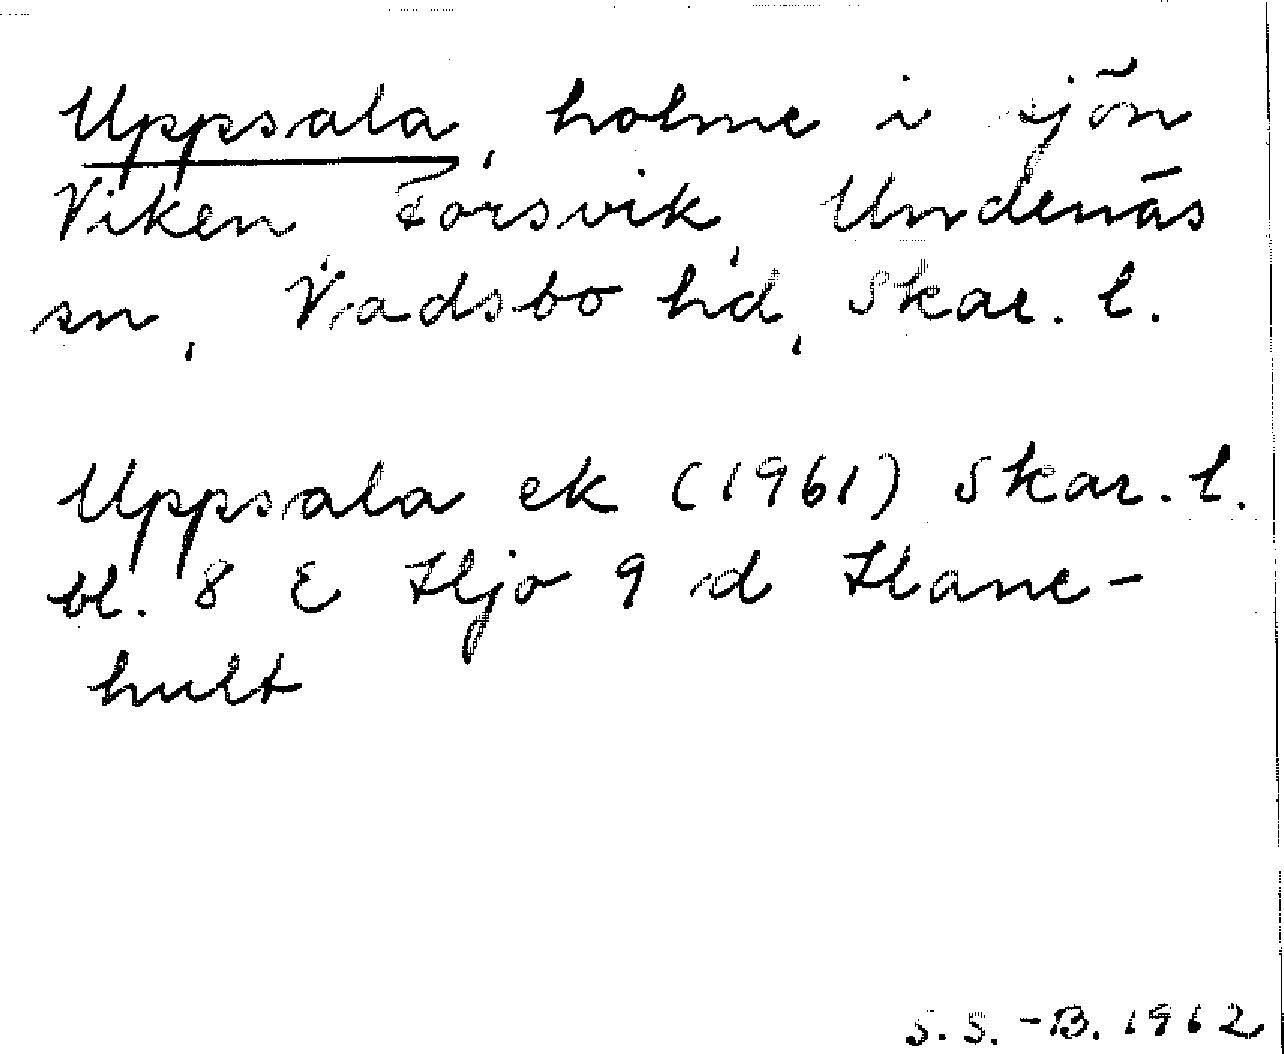 Uppsala, holme i sjön
Viken, Forsvik, Undenäs
sn, Vadsbo hd, Skar. l.
Uppsala ek (1961) Skar. l.
bl. 8 E Hjo 9 d Hane-
hult
S.S.-B. 1962